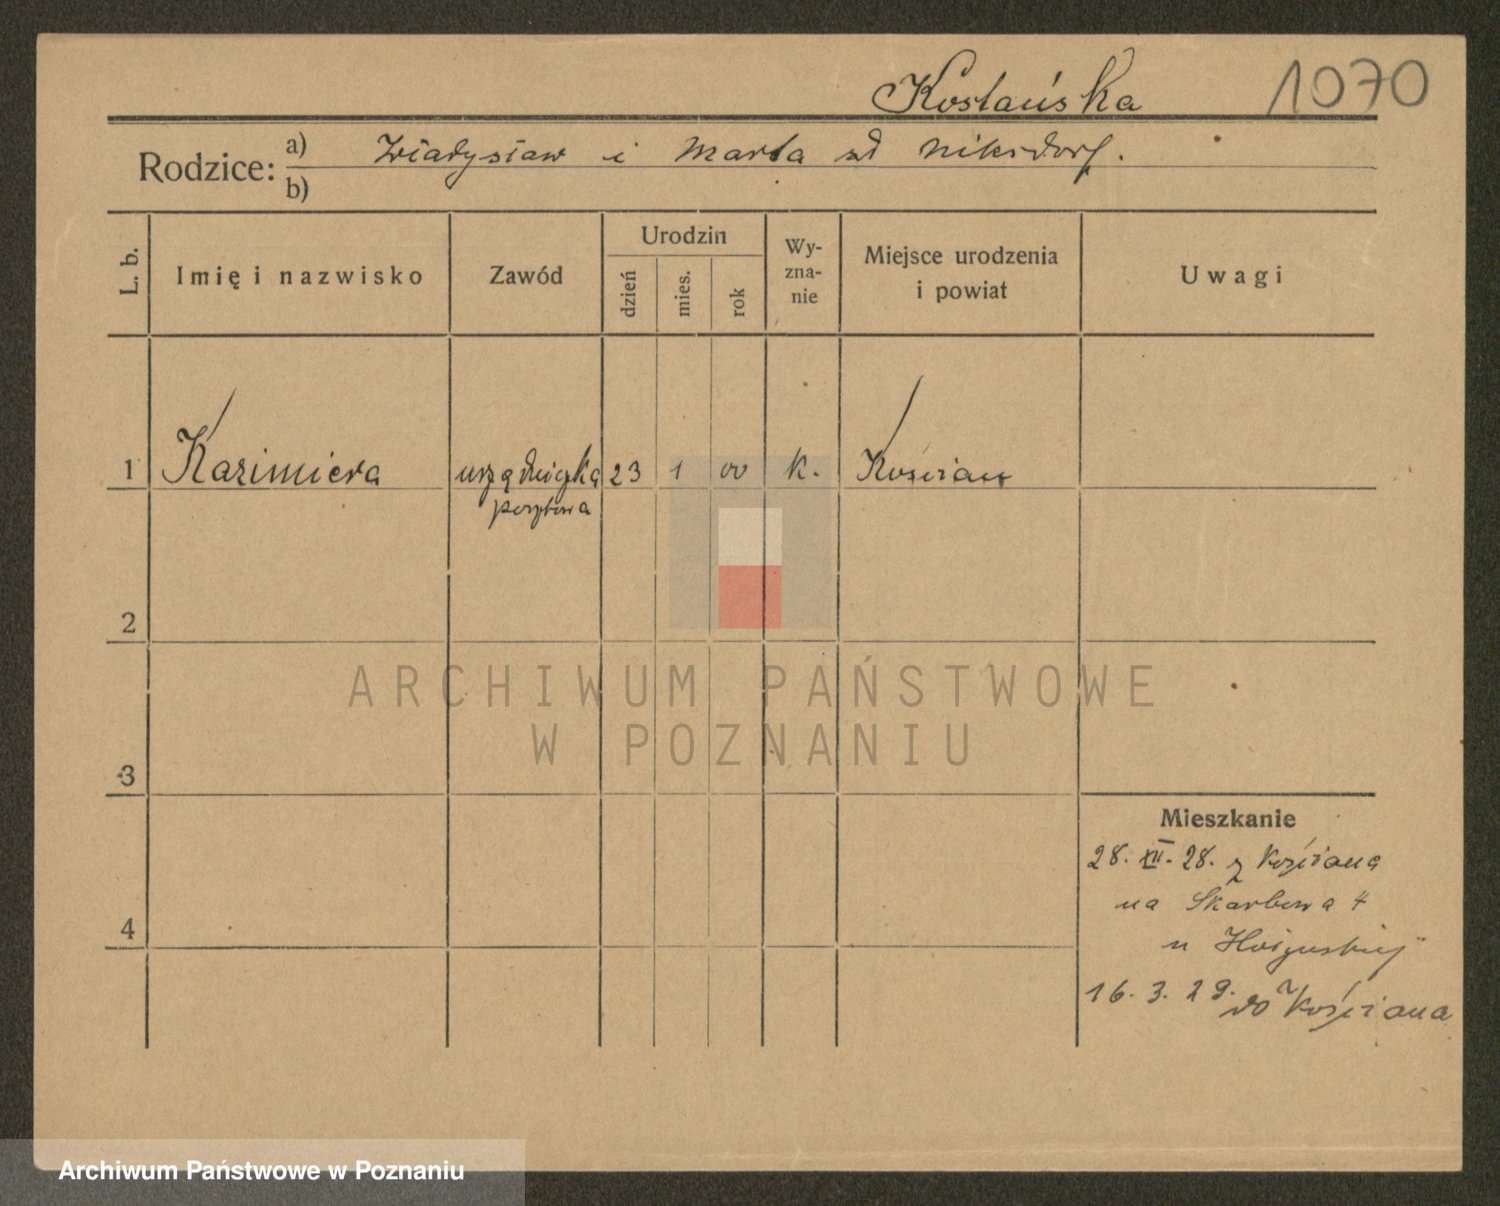 Kostańska 1070
Rodzice: a) Władysław i Marta zd Niksdorf.
b)
L. b. Imię i nazwisko Zawód Urodzin dzień mies. rok Wy-zna-nie Miejsce urodzenia i powiat Uwagi
1 Kazimiera urzędniczka 23 1 00 k. Kościan
pocztowa
2
3
4
ARCHIWUM PAŃSTWOWE
W POZNANIU
Mieszkanie
28. XII. 28. z Kościana
na Skarbowa 4
u
16. 3. 29. do Kościana
Archiwum Państwowe w Poznaniu